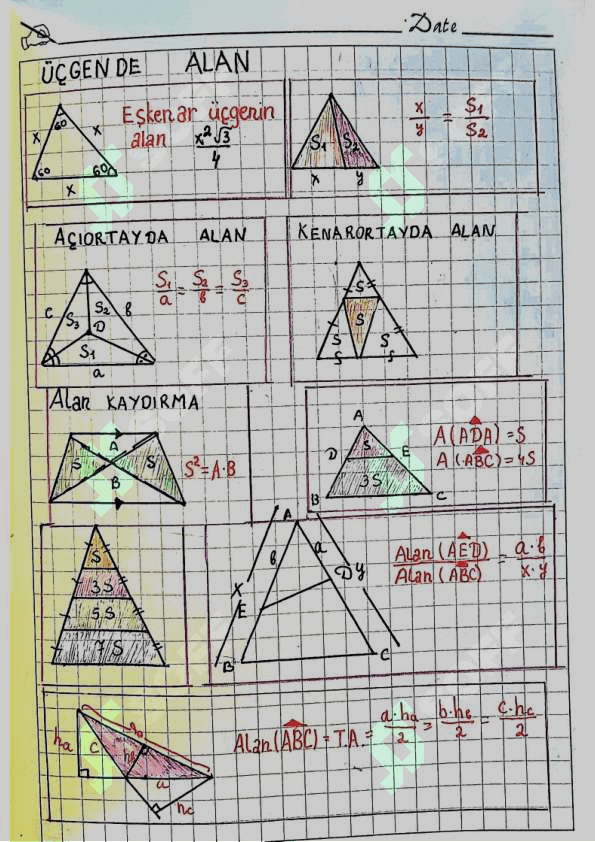 Date
ÜÇGENDE ALAN
60
x
x
60
60
x
Eşkenar üçgenin
alan x²√3/4
S1 S2
x y
x/y = S1/S2
AÇIORTAYDA ALAN
c
S3
S2
b
D
S1
a
S1/a = S2/b = S3/c
KENARORTAYDA ALAN
S
S
S
S
Alan KAYDIRMA
A
S
S
B
S²=A·B
A
D
S
E
B
3S
C
A(ADA)=S
A(ABC)=4S
S
3S
5S
7S
A
a
b
x
D
y
E
B
C
Alan(AED)/Alan(ABC) = a·b/x·y
ha
c
hb
a
hc
Alan(ABC)=T.A.= a·ha/2 = b·hb/2 = c·hc/2